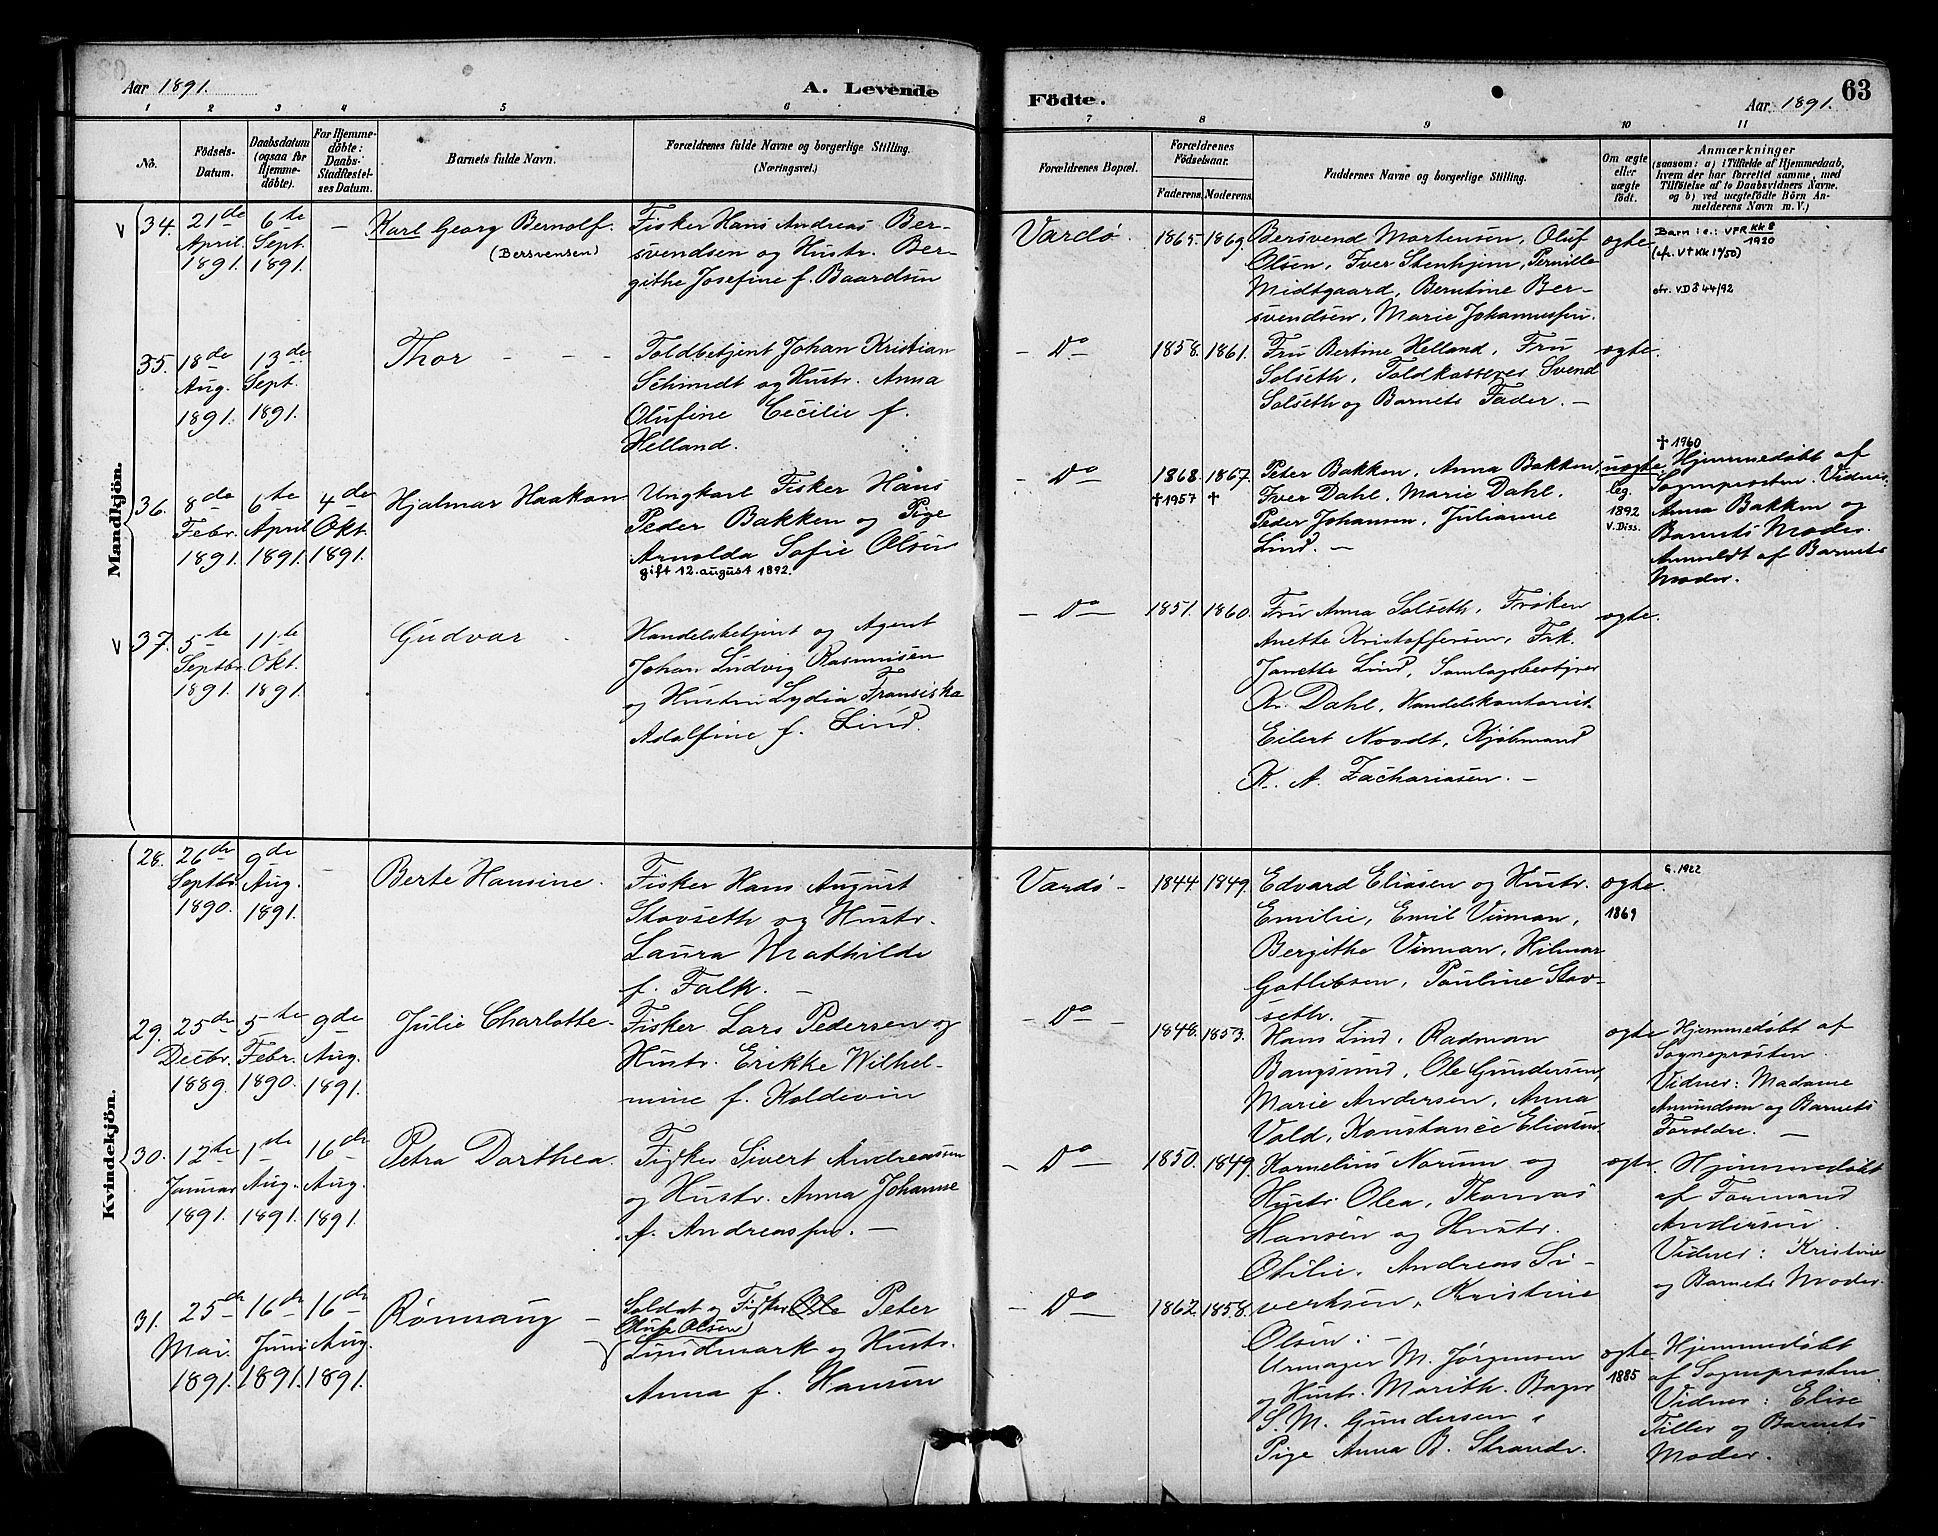 Aar 1891. A. Levende
Födte. Aar 1891. 63
1 2 3 4 5 6
7 8 9 10 11
No. Födsels-Datum. Daabsdatum (ogsaa for Hjemmedöbte). For Hjemmedöbte: Daabs-Stadfæstelses Datum. Barnets fulde Navn. Forældrenes fulde Navne og borgerlige Stilling. (Næringsvei.)
Forældrenes Bopæl. Forældrenes Födselsaar. Faderens. Moderens. Faddernes Navne og borgerlige Stilling. Om ægte eller uægte födt. Anmærkninger (saasom: a) i Tilfælde af Hjemmedaab, hvem der har forrettet samme, med Tilföielse af to Daabsvidners Navne, og b) ved uægtefödte Börn Anmelderens Navn m. V.)
Mandkjön.
34. 21de April 1891. 6te Sept. 1891. — Karl Georg Bernolf. (Bersvensen)
Fisker Hans Andreas Ber-
svendsen og Hustr. Ber-
githe Josefine f. Baardsen
Vardø. 1865. 1869.
Bersvend Mortensen, Oluf
Olsen, Iver Stenhjem, Pernille
Midtgaard, Berntine Ber-
svendsen, Marie Johannessen.
ægte.
Barn i e.: VFR KK 8 1920
(cfr. V+KK 17/50)
cfr. VD 8 44/92
35. 18de Aug. 1891. 13de Sept. 1891. Thor — — —
Toldbetjent Johan Kristian
Schmidt og Hustr. Anna
Olufine Cecilie f.
Helland.
— Do — 1858. 1861.
Fru Bertine Helland, Fru
Solseth, Toldkasserer Svend
Solseth og Barnets Fader. —
ægte.
36. 8de Febr. 1891. 6te April 1891. 4de Okt. 1891. Hjalmar Haakon
Ungkarl Fisker Hans
Peder Bakken og Pige
Arnolda Sofie Olsen
gift 12. august 1892.
— Do — 1868. 1867.
†1957 †
Peter Bakken, Anna Bakken,
Iver Dahl, Marie Dahl,
Peder Johansen, Julianne
Lind. —
uægte.
leg. 1892 V. Diss.
† 1960
Hjemmedøbt af
Sogneprosten. Vidner
Anna Bakken og
Barnets Moder.
Anmeldt af Barnets
Moder.
37. 5te Septbr. 1891. 11te Okt. 1891. Gudvar
Handelsbetjent og Agent
Johan Ludvig Rasmussen
og Hustru Lydia Fransiska
Adolfine f. Lind.
— Do — 1851. 1860.
Fru Anna Solseth, Frøken
Anette Kristoffersen, Frk.
Janette Lind, Samlagsbestyrer
Kr. Dahl, Handelskontorist
Eilert Noodt, Kjøbmand
K. A. Zachariasen. —
ægte.
Kvindekjön.
28. 26de Septbr. 1890. 9de Aug. 1891. — Berte Hansine.
Fisker Hans August
Stavseth og Hustr.
Laura Mathilde
f. Falk. —
Vardø — 1844. 1849.
Edvard Eliasen og Hustr.
Emilie, Emil Vinman,
Bergithe Vinman, Hilmar
Gotlibsen, Pauline Stav-
seth.
ægte. 1869
G. 1922
29. 25de Decbr. 1889. 5te Febr. 1890. 9de Aug. 1891. Julie Charlotte.
Fisker Lars Pedersen og
Hustr. Erikke Wilhel-
mine f. Koldevin
— Do — 1848. 1853.
Hans Lind, Radman
Bangsund, Ole Gundersen,
Marie Andersen, Anna
Vold, Konstance Eliasen.
ægte
Hjemmedøbt af
Sogneprosten.
Vidner: Madame
Amundsen og Barnets
Forældre. —
30. 12te Januar 1891. 1ste Aug. 1891. 16de Aug. 1891. Petra Dorthea.
Fisker Sivert Andreassen
og Hustr. Anna Johanne
f. Andreassen. —
— Do — 1850. 1849.
Kornelius Norum og
Hustr. Olea, Thomas
Hansen og Hustr.
Otilie, Andreas Si-
vertsen, Kristine
Olsen.
ægte.
Hjemmedøbt
af Formand
Andersen.
Vidner: Kristine
og Barnets Moder.
31. 25de Mai. 1891. 16de Juni 1891. 16de Aug. 1891. Rønnaug —
Soldat og Fisker Ole Peter
(Oluf Olsen)
Lindmark og Hustr.
Anna f. Hansen
— Do — 1862. 1858.
Urmager M. Jørgensen
og Hustr. Marith. Bager
S. M. Gundersen,
Pige Anna B. Strand.
ægte. 1885
Hjemmedøbt
af Sogneprosten.
Vidner: Elise
Tiller og Barnets
Moder.